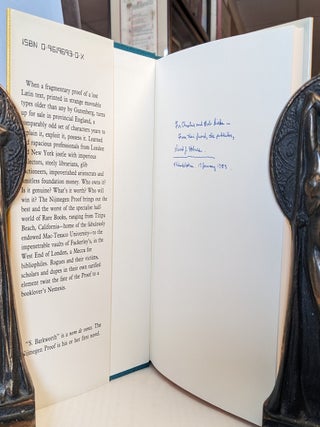 ISBN 0-9619693-0-X
When a fragmentary proof of a lost
Latin text, printed in strange movable
types older than any by Gutenberg, turns
up for sale in provincial England, a
comparably odd set of characters years to
obtain it, exploit it, possess it. Learned
and rapacious professionals from London
and New York jostle with imperious
collectors, seedy librarians, glib
auctioneers, impoverished aristocrats and
limitless foundation money. Who owns it?
Is it genuine? What's it worth? Who will
win it? The Nijmegen Proof brings out the
best and the worst of the specialist half-
world of Rare Books, ranging from Trizpa
Beach, California—home of the fabulously
endowed Mac-Texaco University—to the
impenetrable vaults of Fackerley's, in the
West End of London, a Mecca for
bibliophiles. Rogues and their victims,
scholars and dupes in their own rarified
element twist the fate of the Proof to a
booklover's Nemesis.
"S. Barkworth" is a nom de vente. The
Nijmegen Proof is his or her first novel.
For and
from their friend, the publisher,
January 1989